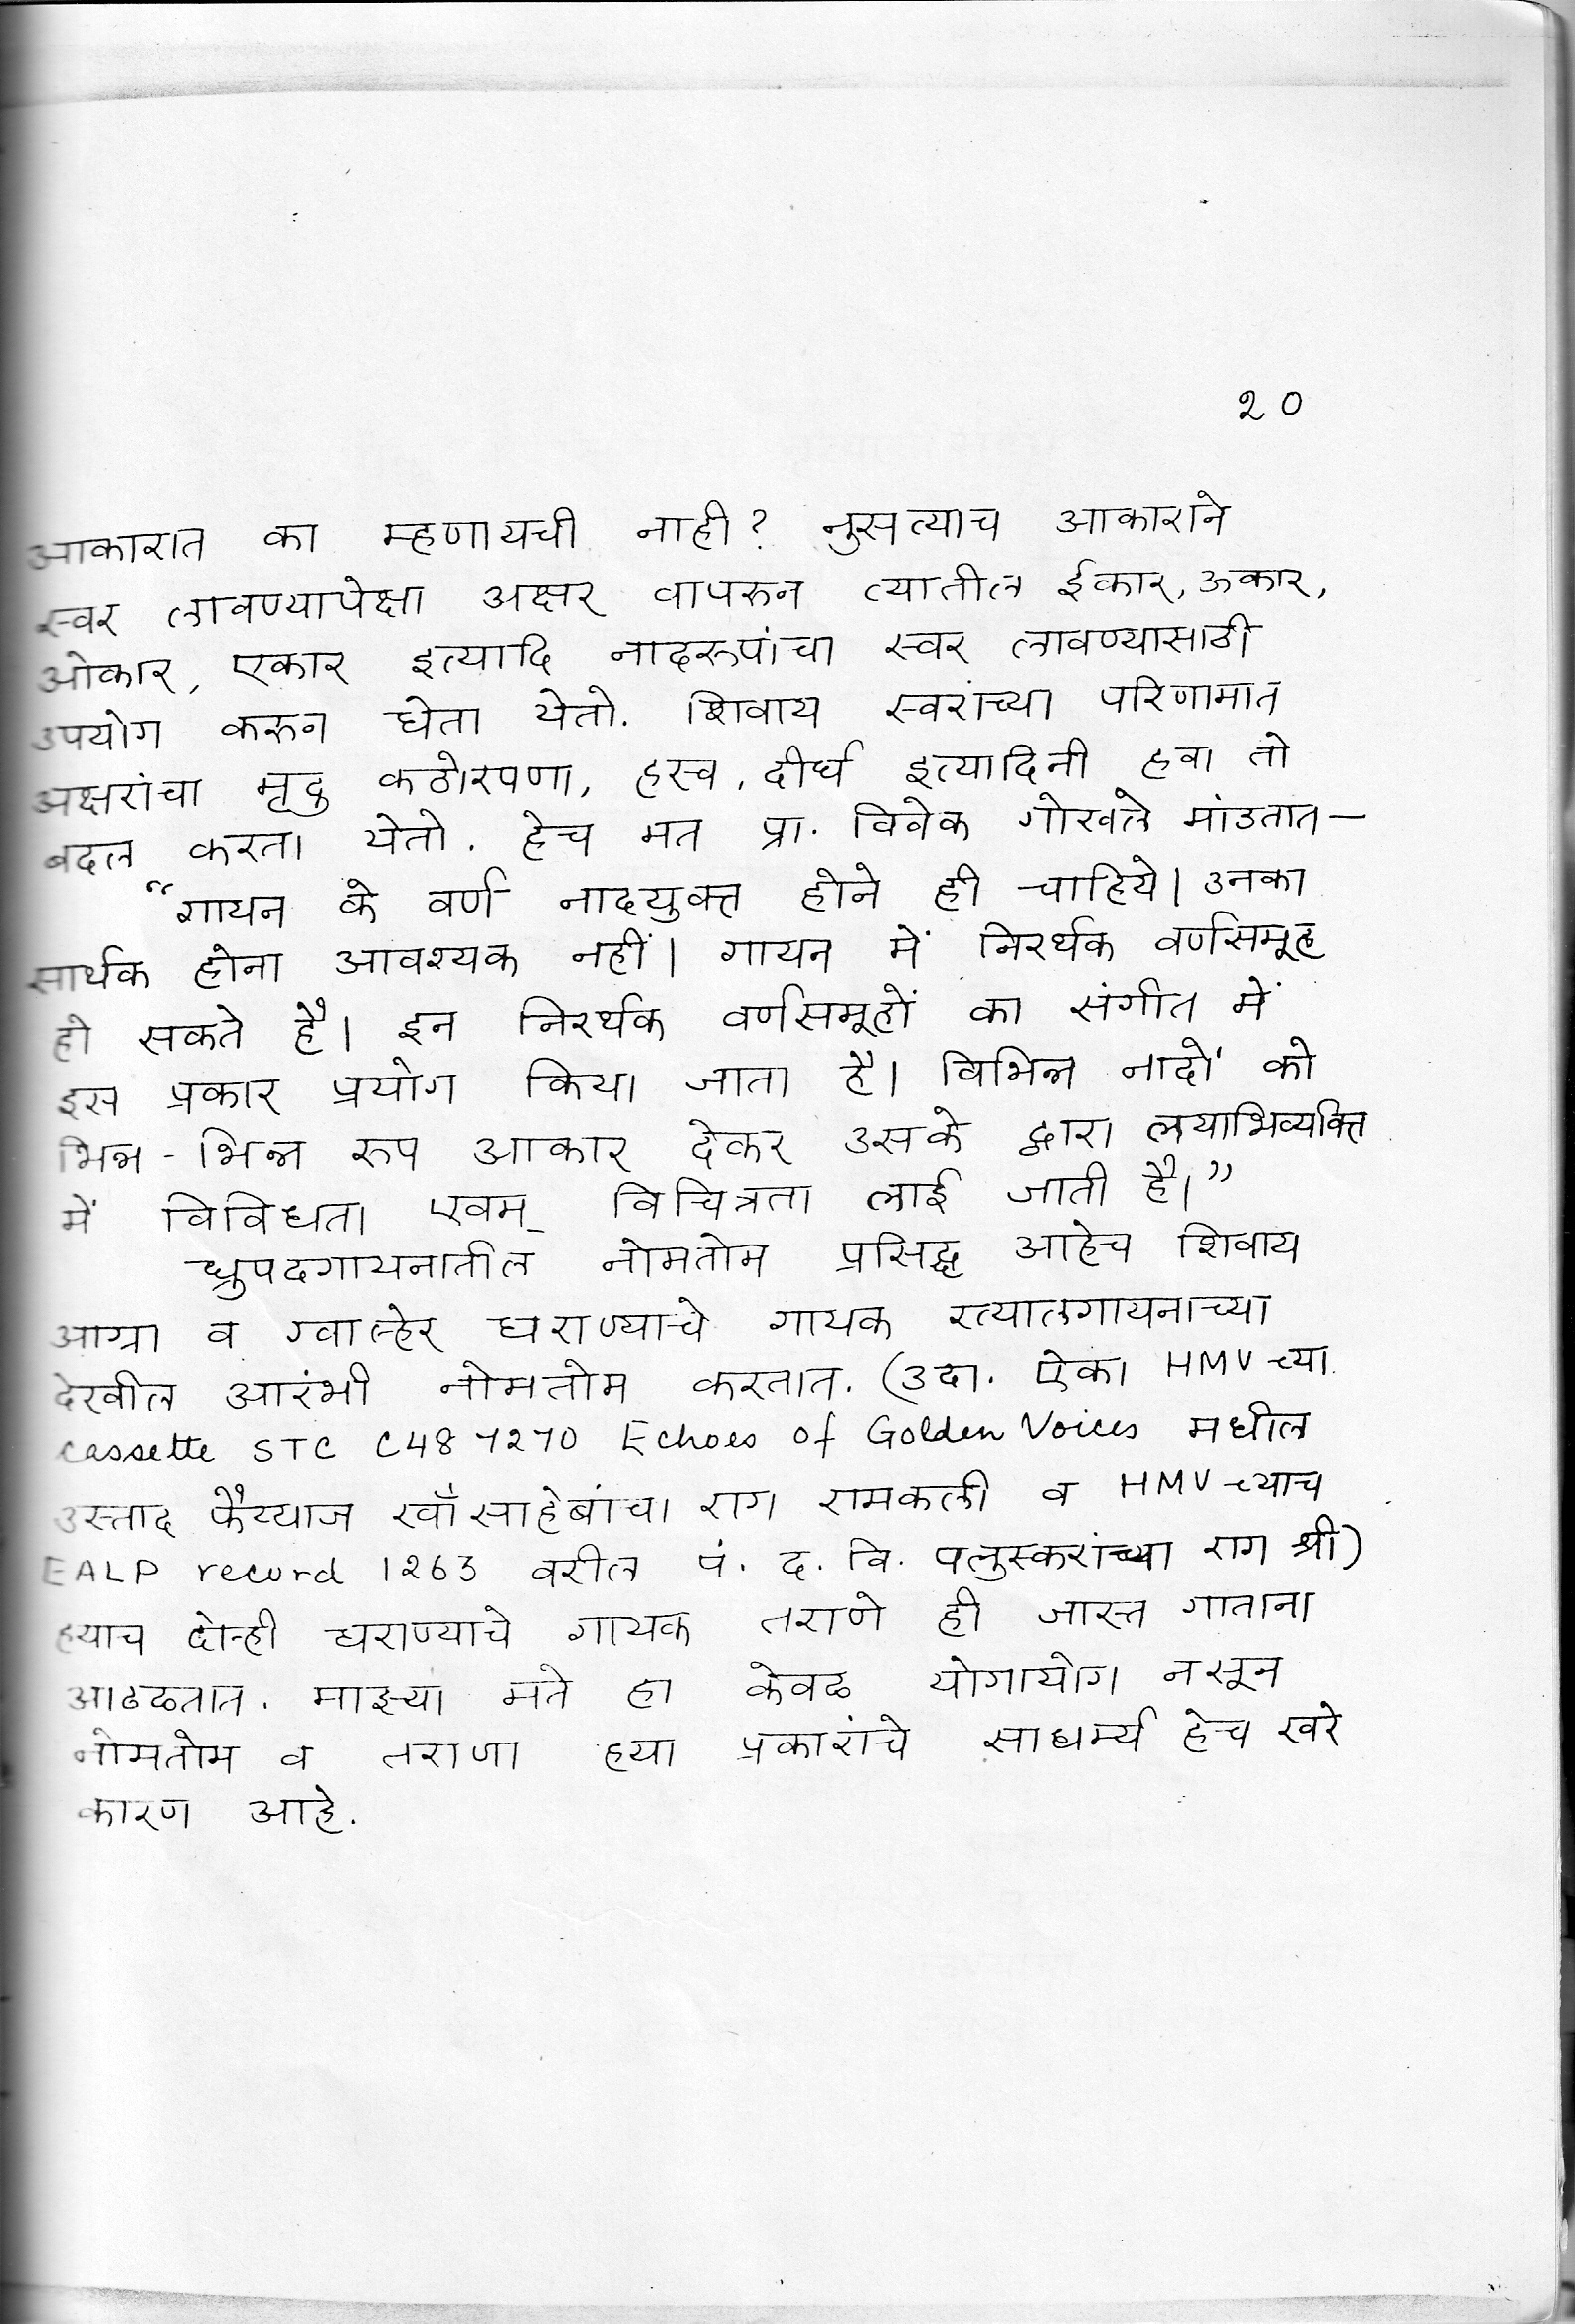 २०
आकारात का म्हणायची नाही? नुसत्याच आकाराने
स्वर लावण्यापेक्षा अक्षर वापरुन त्यातील ईकार, ऊकार,
ओकार, एकार इत्यादि नादरुपांचा स्वर लावण्यासाठी
उपयोग करुन घेता येतो. शिवाय स्वरांच्या परिणामात
अक्षरांचा मृदु कठोरपणा, हस्व, दीर्घ इत्यादिनी हवा तो
बदल करता येतो. हेच मत प्रा. विवेक गोखले मांडतात–
“गायन के वर्ण नादयुक्त होने ही चाहिये। उनका
सार्थक होना आवश्यक नहीं। गायन में निरर्थक वर्णसमूह
हो सकते है। इन निरर्थक वर्णसमूहों का संगीत में
इस प्रकार प्रयोग किया जाता है। विभिन्न नादों को
भिन्न - भिन्न रुप आकार देकर उसके द्वारा लयाभिव्यक्ति
में विविधता एवम् विचित्रता लाई जाती है।”
ध्रुपदगायनातील नोमतोम प्रसिद्ध आहेच शिवाय
आग्रा व ग्वाल्हेर घराण्याचे गायक ख्यालगायनाच्या
देखील आरंभी नोमतोम करतात. (उदा. ऐका HMV च्या
cassette STC C48 7270 Echoes of Golden Voices मधील
उस्ताद फैय्याज खाँसाहेबांचा राग रामकली व HMV च्याच
EALP record 1263 वरील पं. द. वि. पलुस्करांच्या राग श्री)
ह्याच दोन्ही घराण्याचे गायक तराणे ही जास्त गाताना
आढळतात. माझ्या मते हा केवळ योगायोग नसून
नोमतोम व तराणा ह्या प्रकारांचे साधर्म्य हेच खरे
कारण आहे.